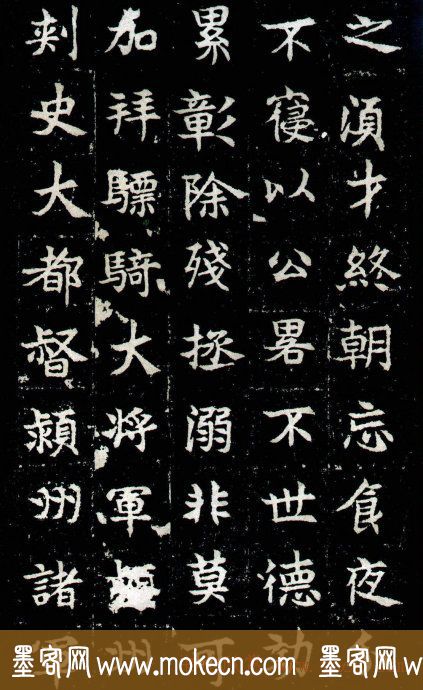 之湏才終朝忘食夜
不寑以公畧不世德
累彰除殘拯溺非莫可
加拜驃騎大將軍潁州
刾史大都督潁州諸軍
墨客网 www.mokecn.com 墨客网